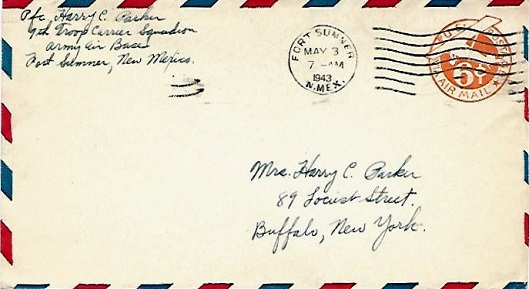 Pfc. Harry C. Parker
9th Troop Carrier Squadron
Army Air Base
Fort Sumner, New Mexico.
FORT SUMNER
MAY 3
7 - AM
1943
N. MEX.
U.S. POSTAGE
6¢
VIA AIR MAIL
Mrs. Harry C. Parker
89 Locust Street.
Buffalo, New York.